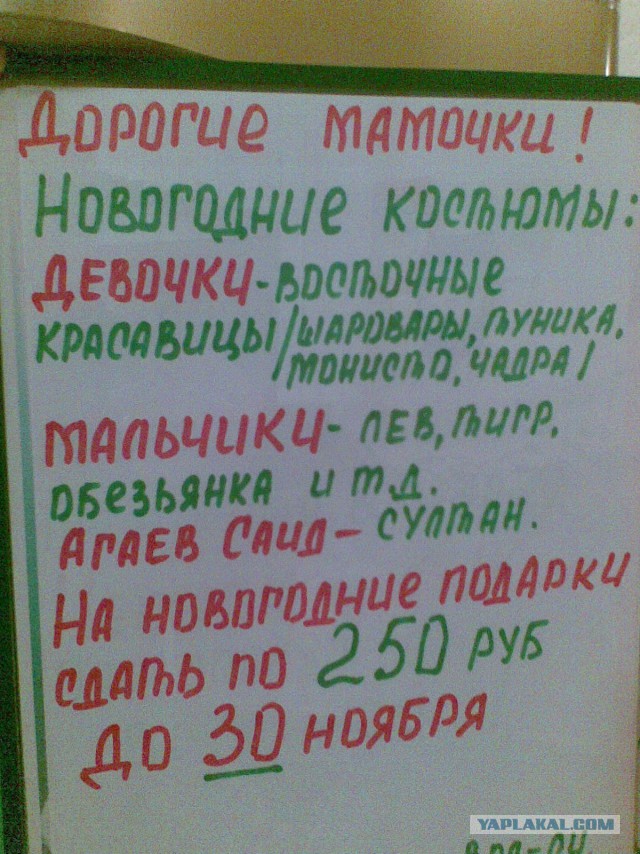 Дорогие мамочки!
Новогодние костюмы:
Девочки-восточные
красавицы /шаровары, туника,
монисто, чадра/
Мальчики- лев, тигр,
обезьянка и т.д.
Агаев Саид- султан.
На новогодние подарки
сдать по 250 руб
до 30 ноября
YAPLAKAL.COM